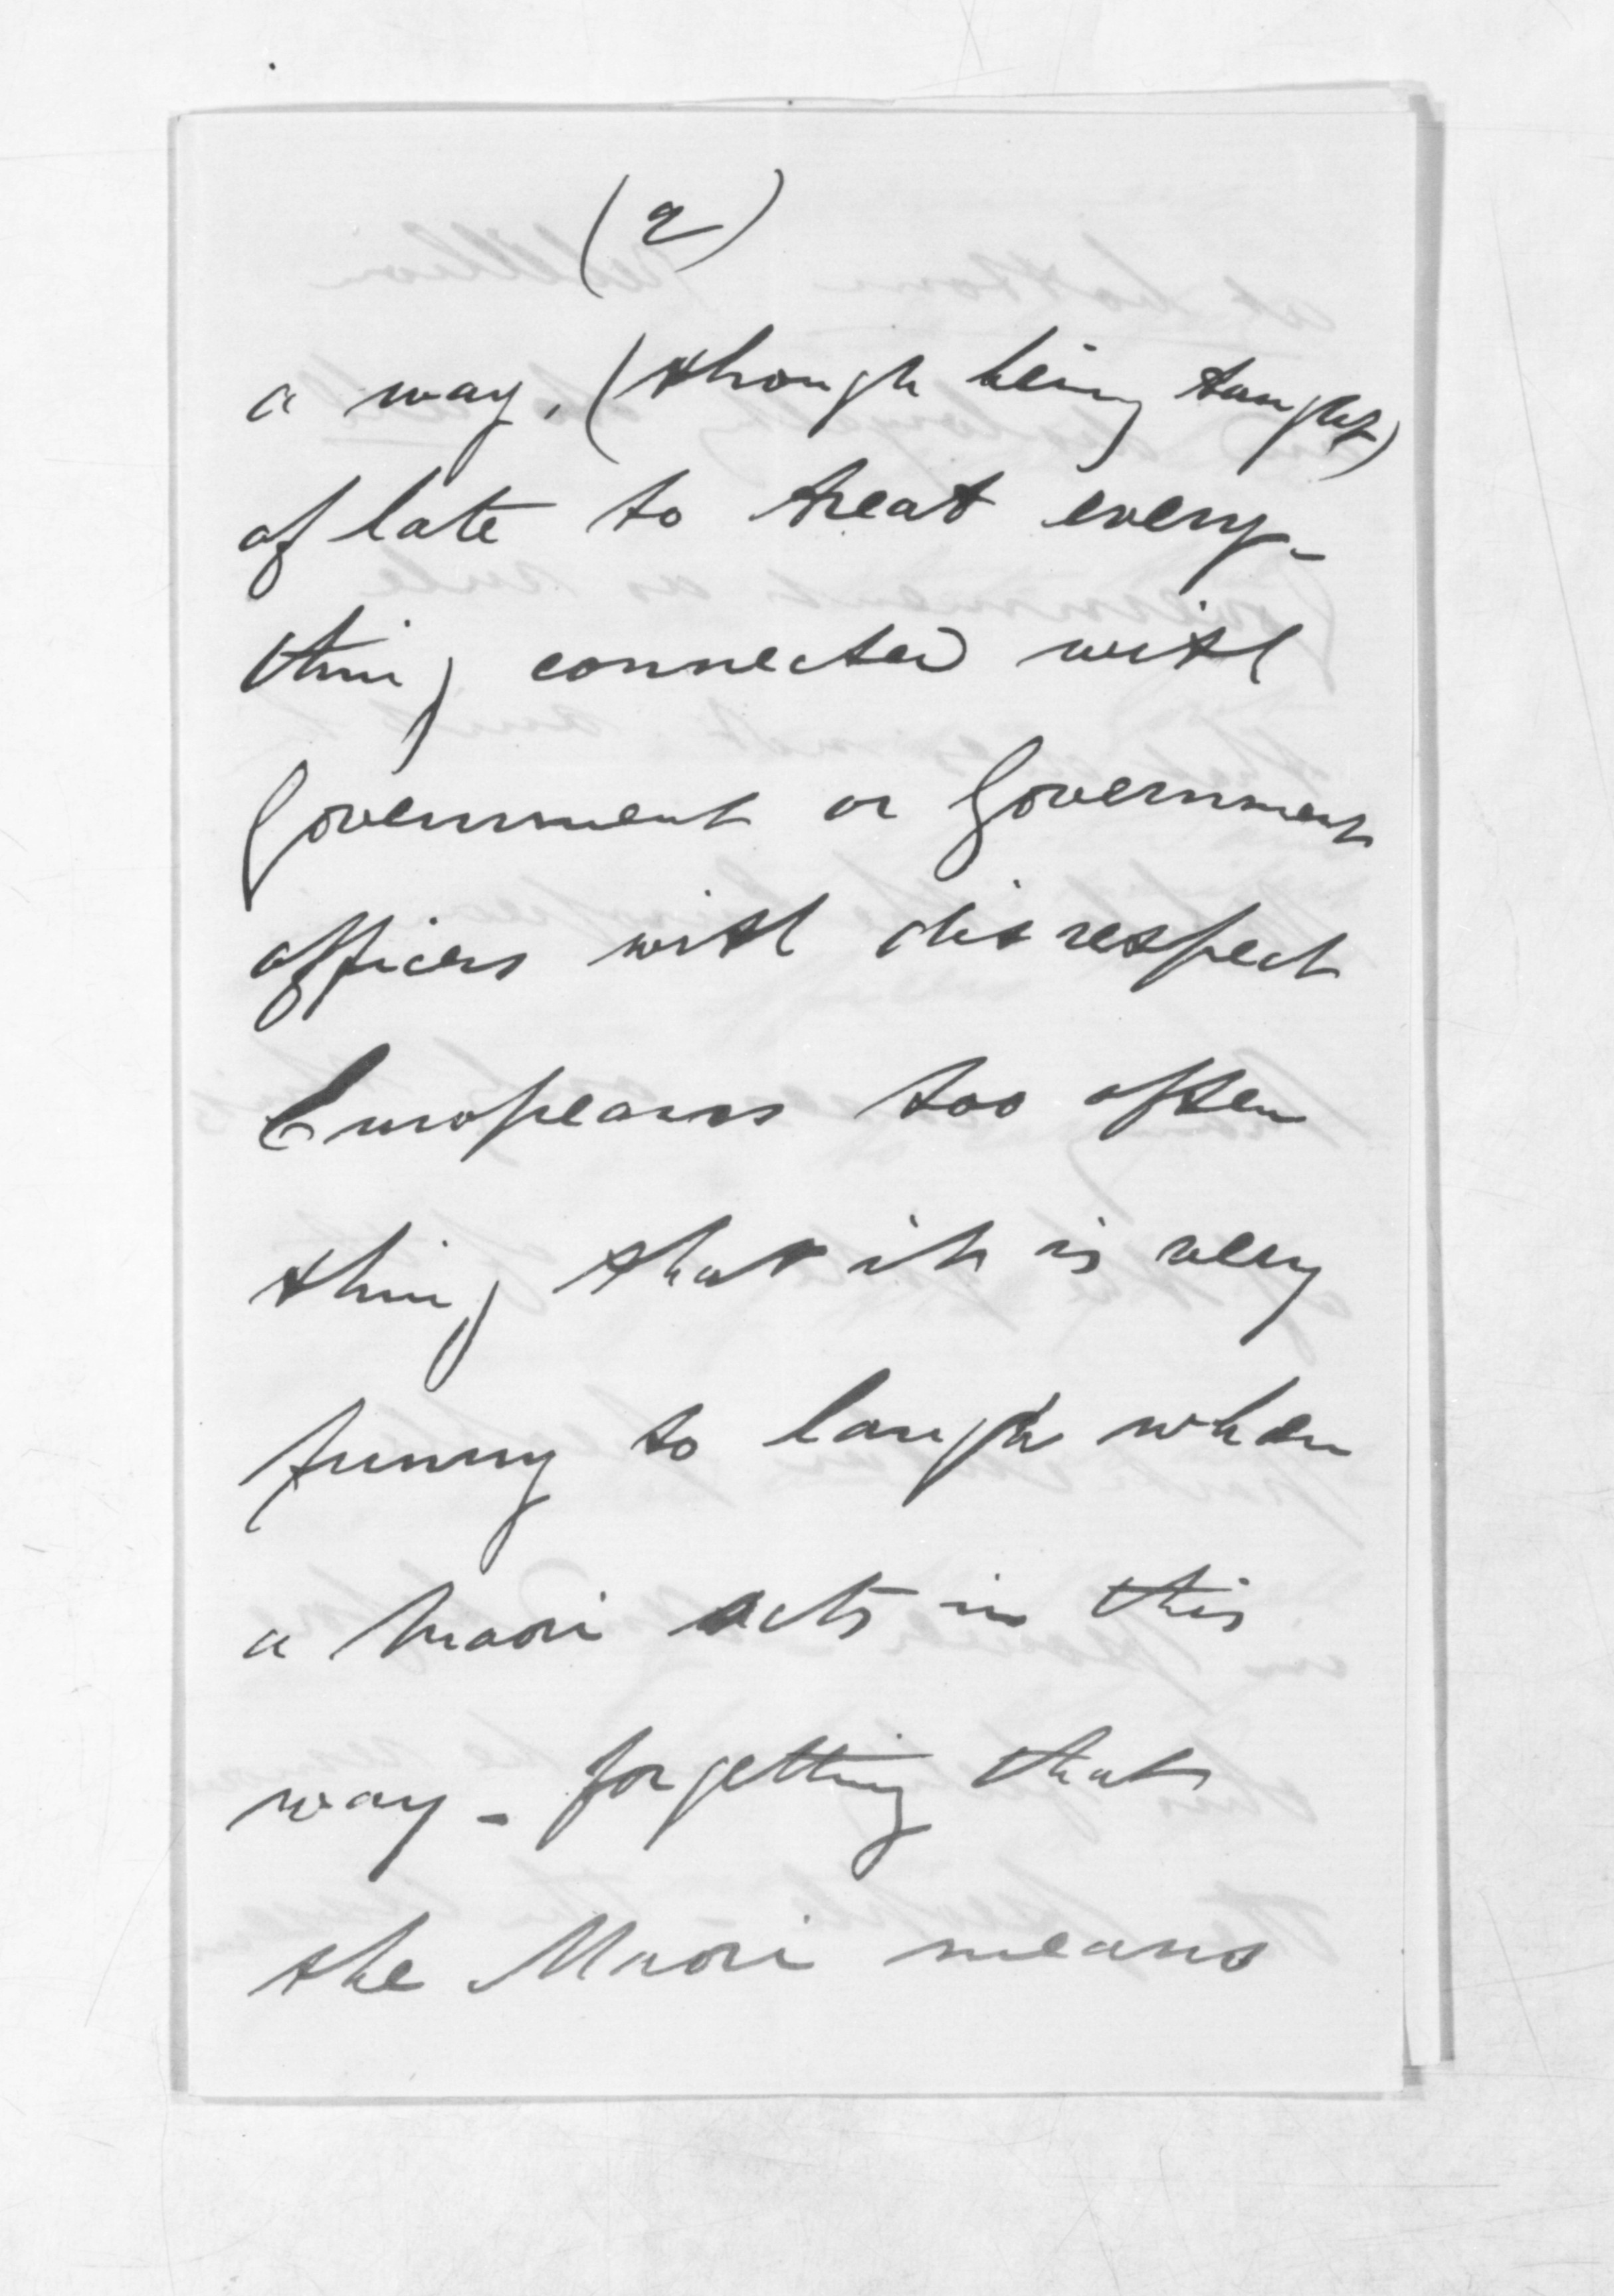 (2)
a way, (though being taught)
of late to treat every-
thing connected with
Government or Government
officers with disrespect
Europeans too often
thing that it is very
funny to laugh when
a Maori acts in this
way - forgetting that
the Maori means